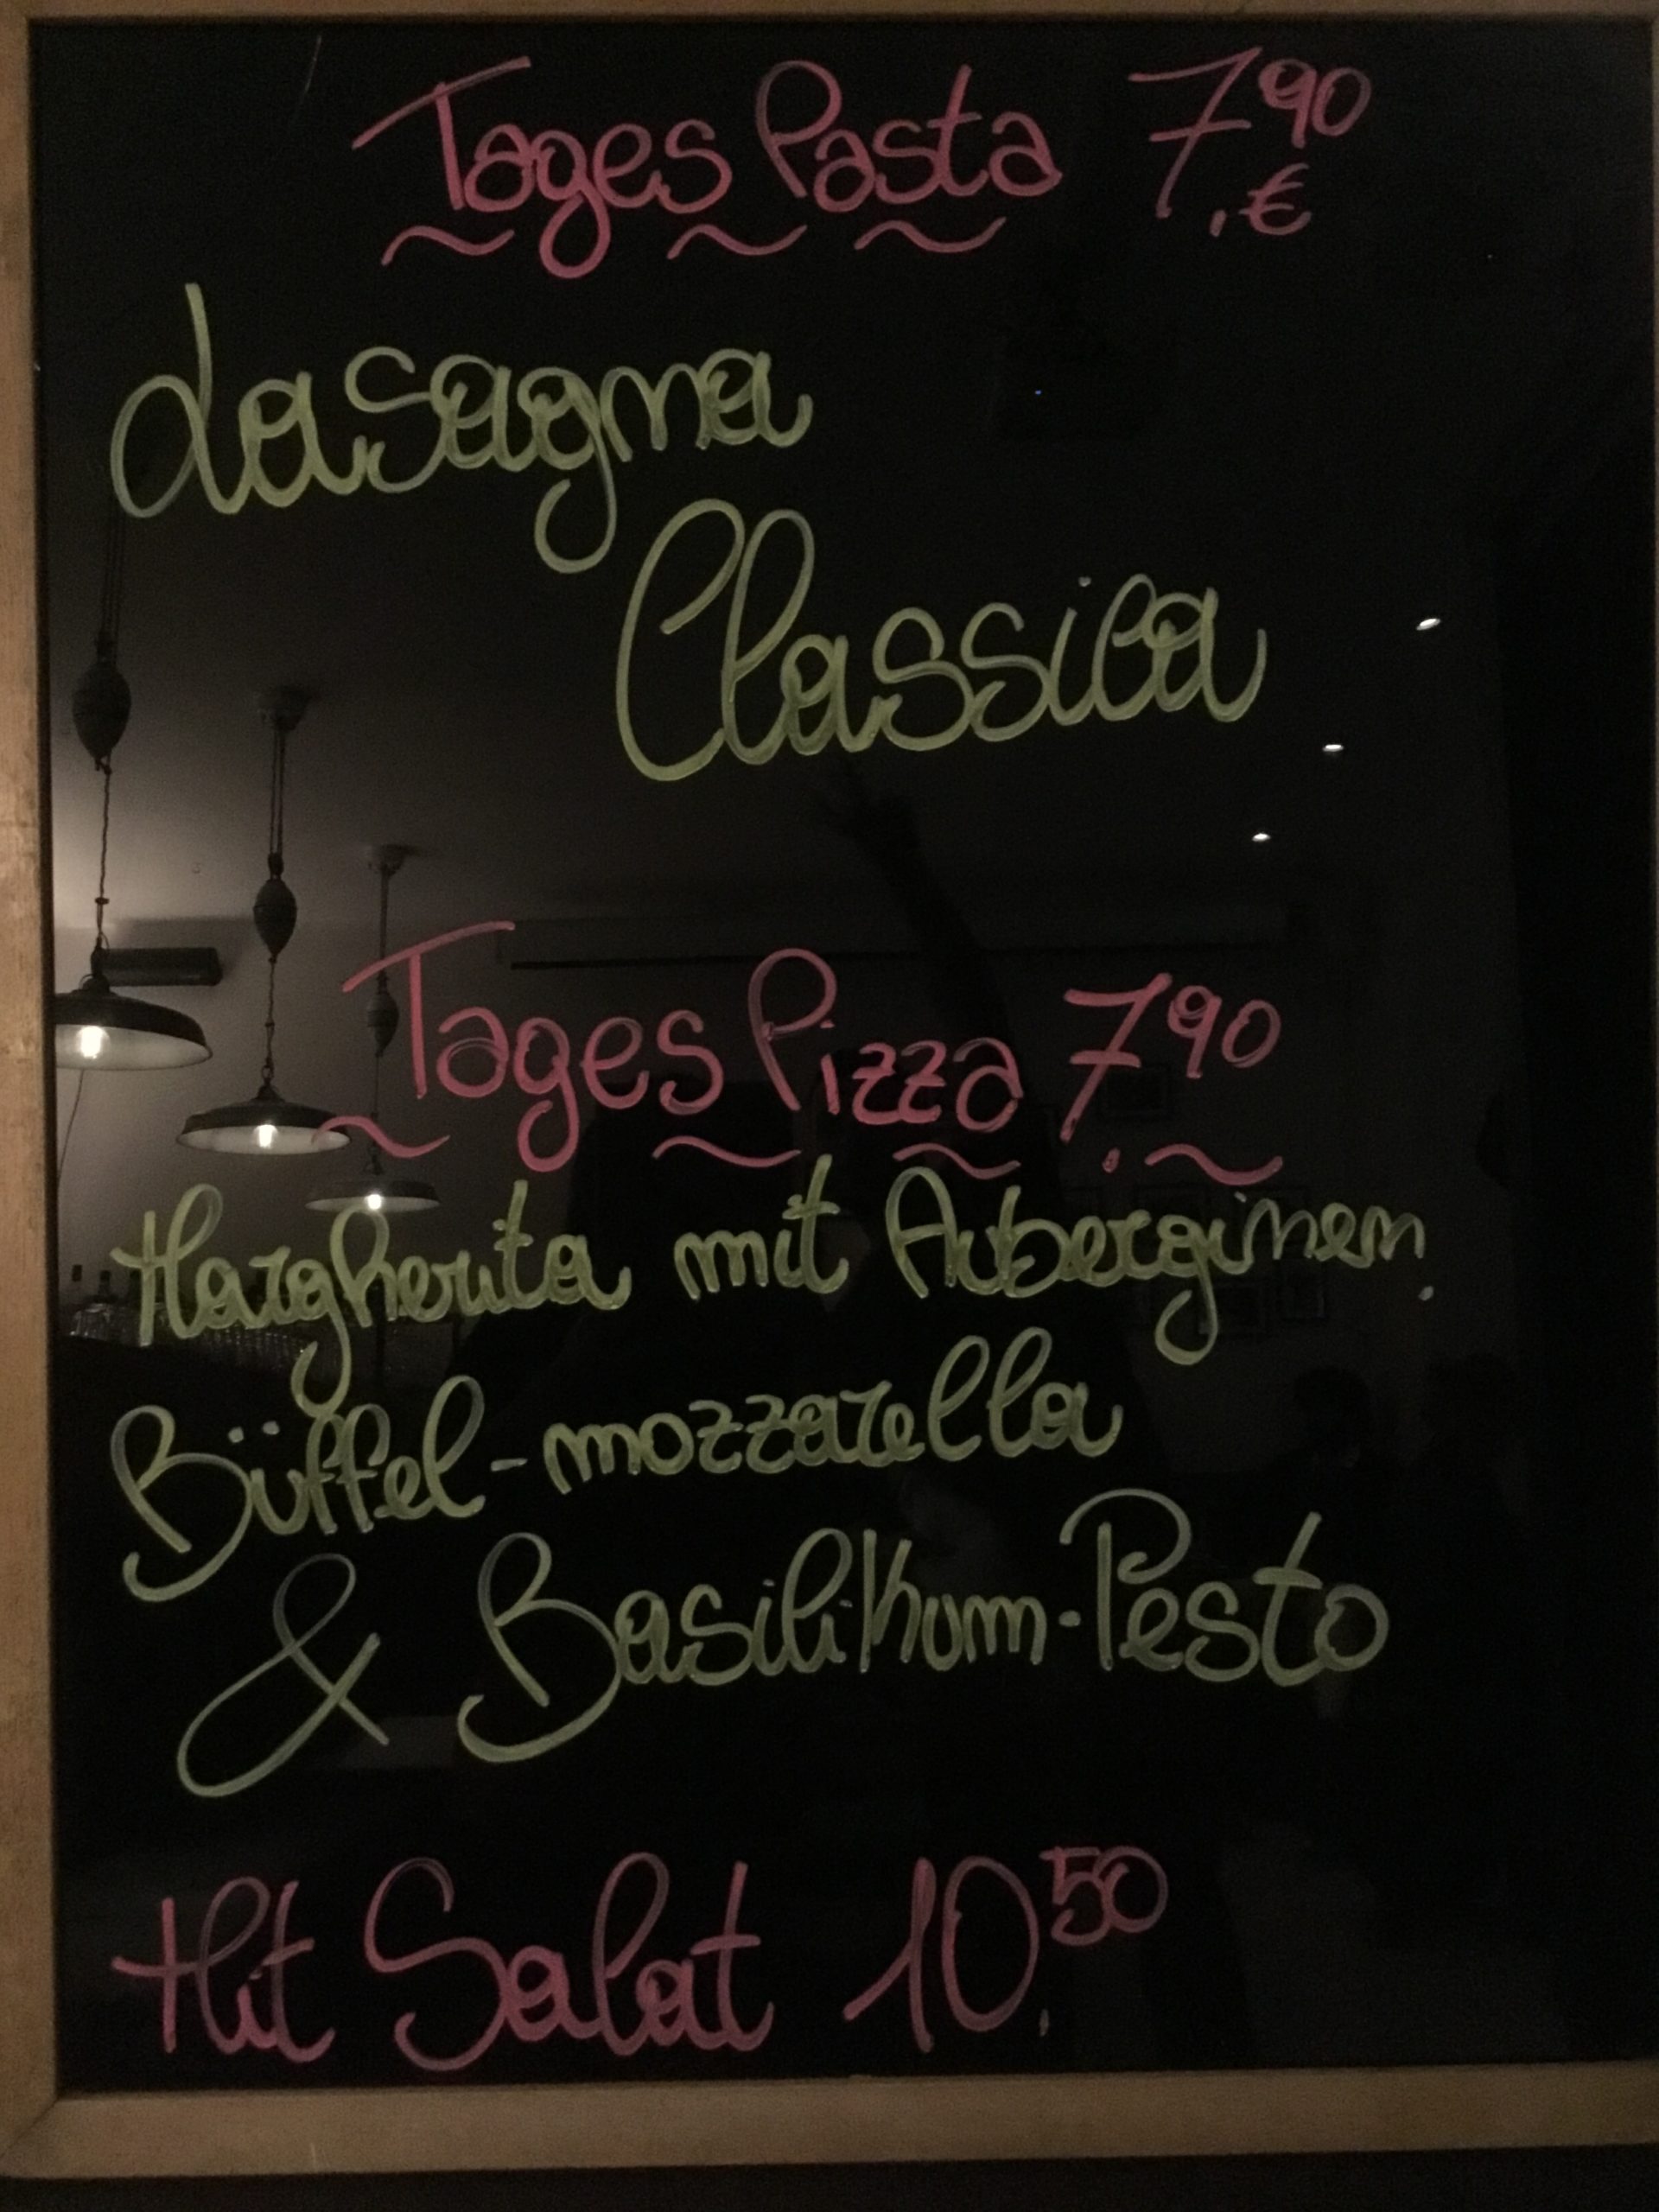 Tages Pasta 7.90 €
Lasagna
Classica
Tages Pizza 7.90
Margherita mit Auberginen,
Büffel-mozzarella
& Basilikum-Pesto
Hit Salat 10.50